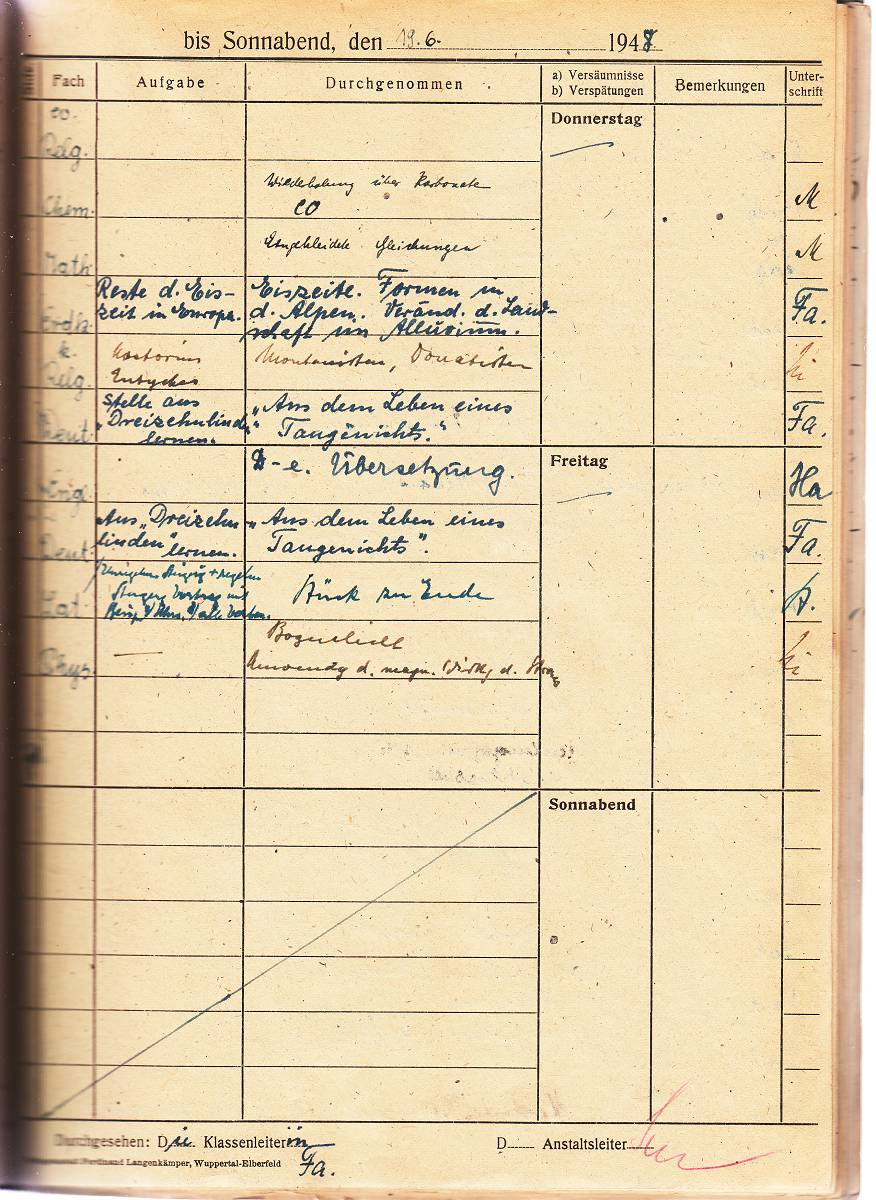 bis Sonnabend, den 19.6. 1948
Fach Aufgabe Durchgenommen a) Versäumnisse b) Verspätungen Bemerkungen Unter-schrift
Donnerstag
ev.
Relg.
Chem. Wiederholung über Karbonate M
CO
Math. Eingekleidete Gleichungen M
Erdk. Reste d. Eis- Eiszeitl. Formen in Fa.
zeit in Europa. d. Alpen. Veränd. d. Land-
schaft im Alluvium.
k.
Relg. Nestorius Montanisten, Donatisten
Eutyches
Deut. Stelle aus „Aus dem Leben eines Fa.
„Dreizehnlinden“ Taugenichts.“
lernen.
Freitag
Engl. D-e. Übersetzung. Ha
Deut. Aus „Dreizehn- „Aus dem Leben eines Fa.
linden“ lernen. Taugenichts“.
Lat. Stück zu Ende
Phys. Bogenlicht
Anwendg d. magn. Wirkg d. Stroms
Sonnabend
Durchgesehen: Die Klassenleiterin Fa. D Anstaltsleiter
Ferdinand Langenkämper, Wuppertal-Elberfeld